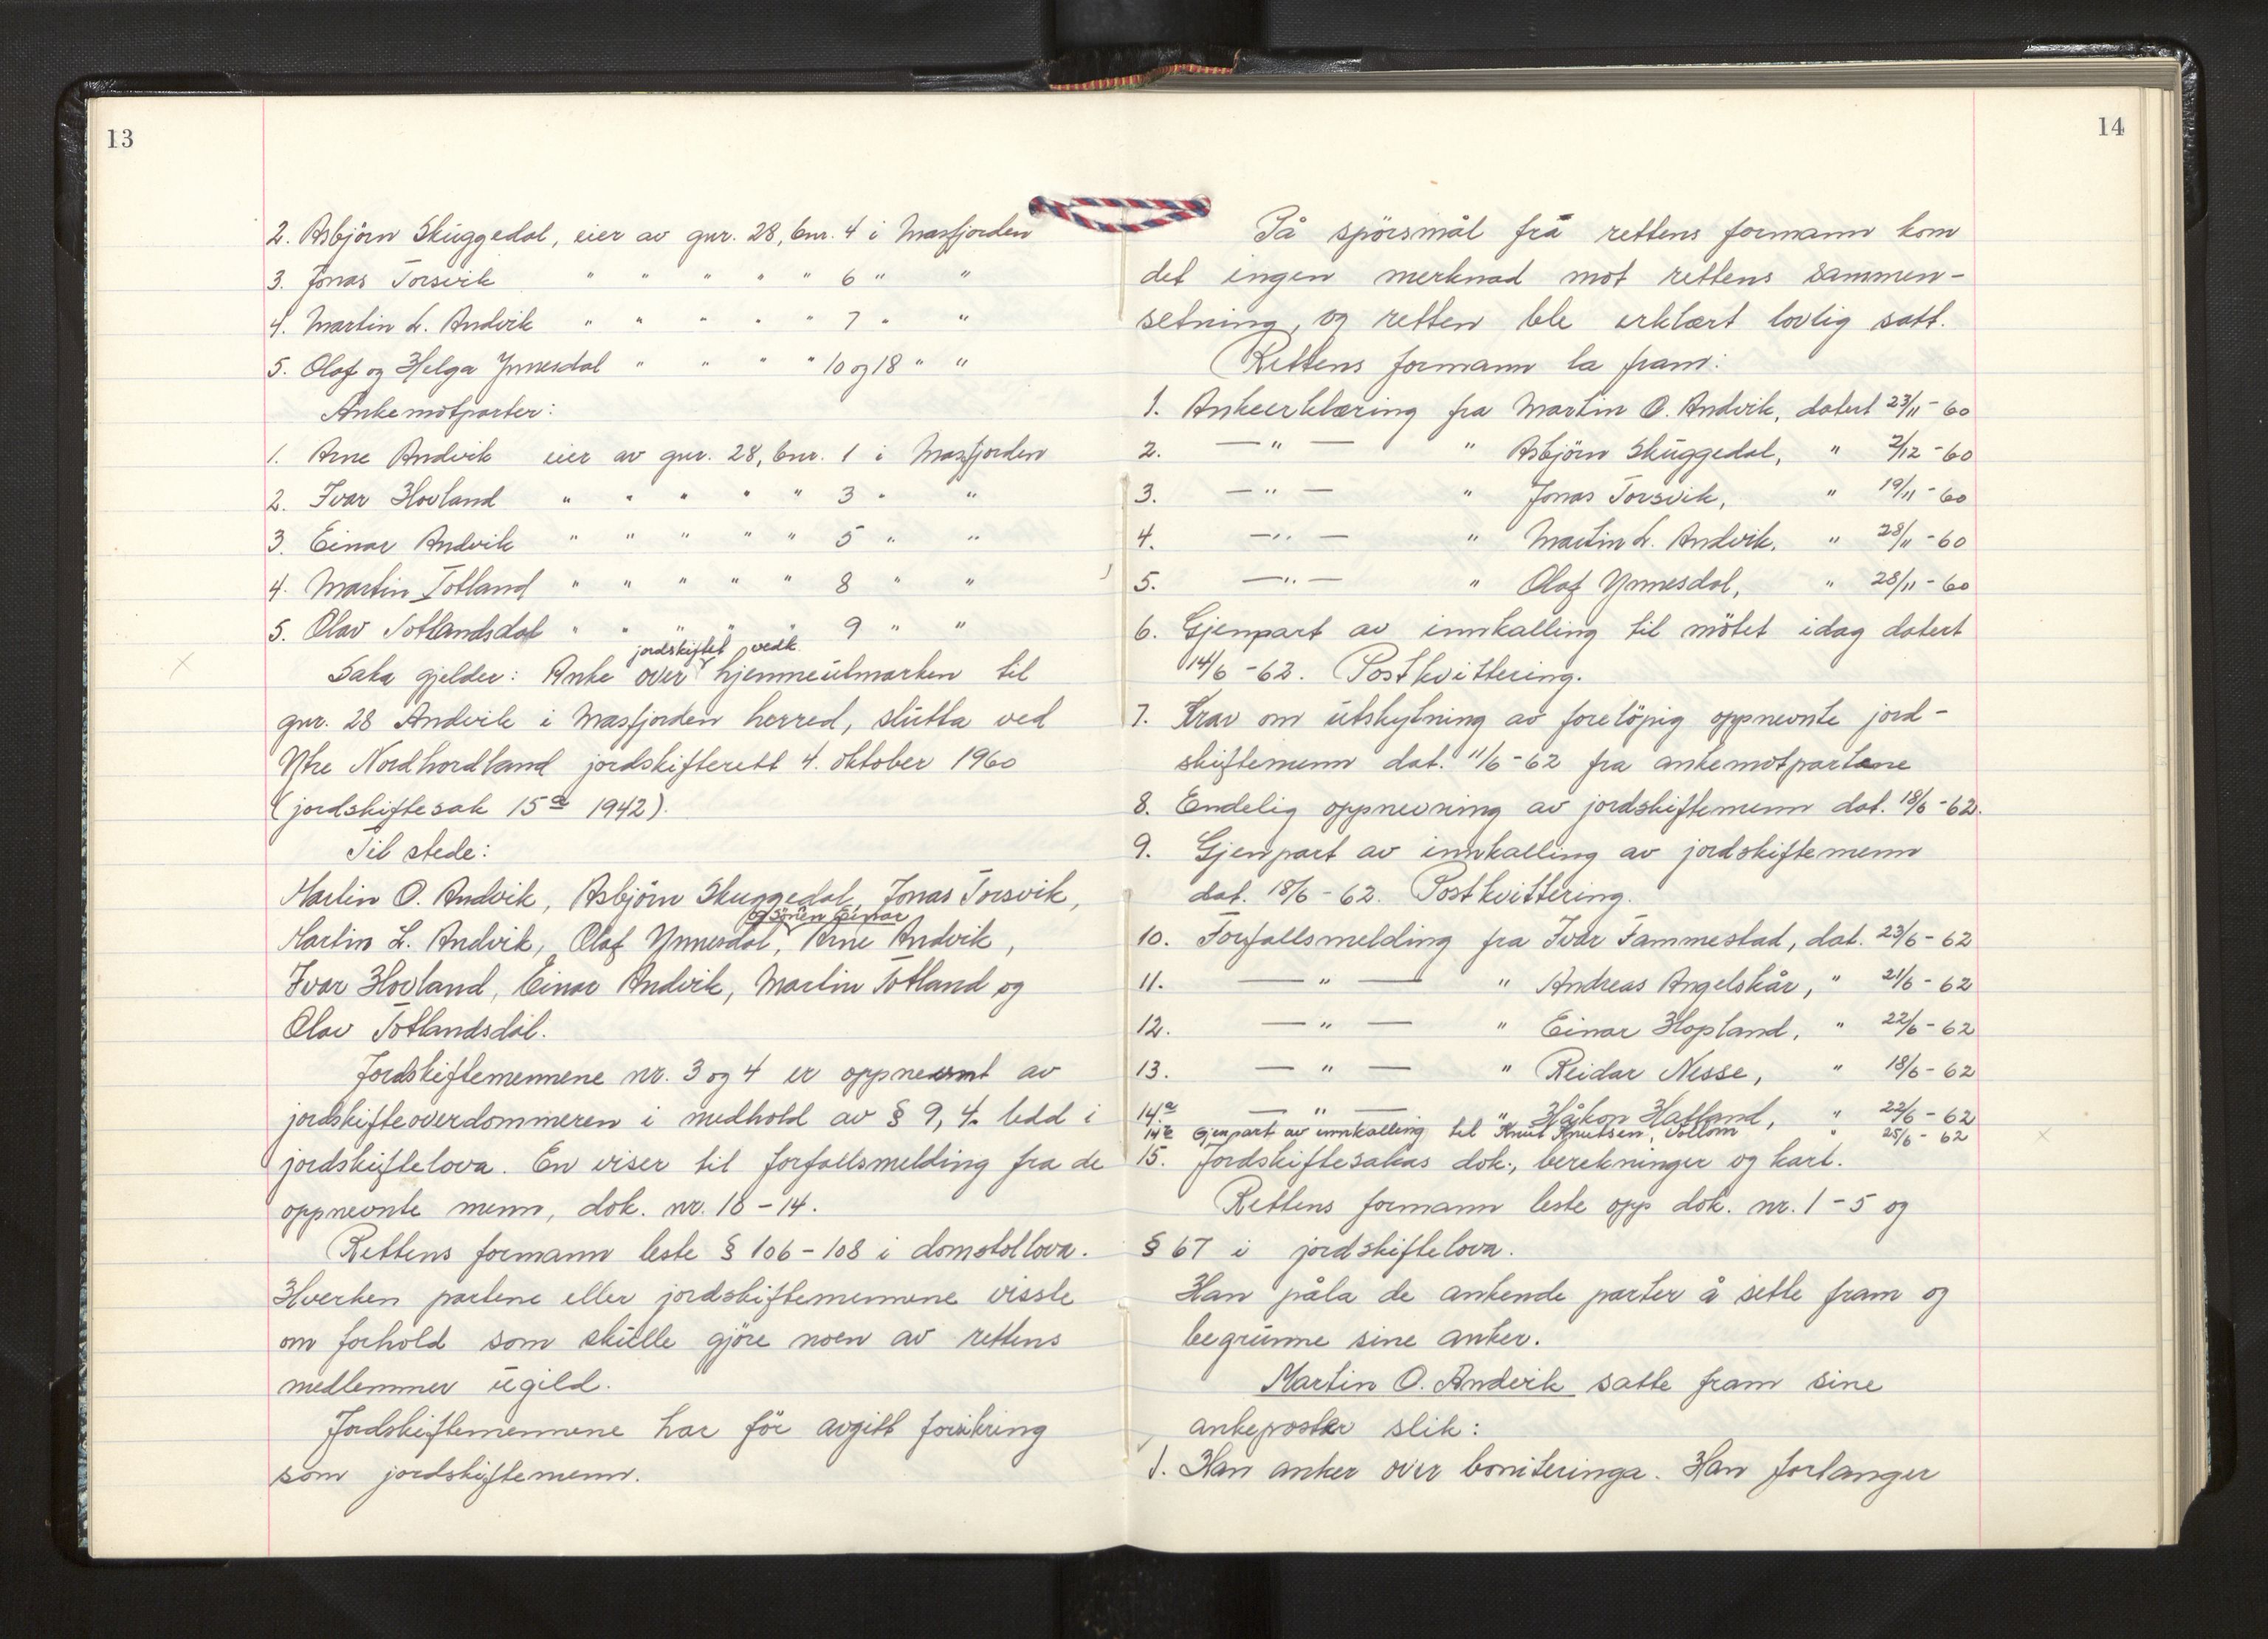 13
2. Asbjörn Skuggedal, eier av gnr. 28, bnr. 4 i Masfjorden
3. Jonas Torsvik " " " " " 6 " "
4. Martin L. Andvik " " " " " 7 " "
5. Olaf og Helga Ynnesdal " " " " 10 og 18 " "
Ankemotparter:
1. Arne Andvik eier av gnr. 28, bnr. 1 i Masfjorden
2. Ivar Hovland " " " " " 3 " "
3. Einar Andvik " " " " " 5 " "
4. Martin Totland " " " " " 8 " "
5. Olav Totlandsdal " " " " 9 " "
jordskiftet vedk.
Saka gjelder: Anke over hjemmeutmarken til
gnr. 28 Andvik i Masfjorden herred, slutta ved
Ytre Nordhordland jordskifterett 4. oktober 1960
(jordskiftesak 15a 1942).
Til stede:
Martin O. Andvik, Asbjörn Skuggedal, Jonas Torsvik,
og sönen Einar
Martin L. Andvik, Olaf Ynnesdal, Arne Andvik,
Ivar Hovland, Einar Andvik, Martin Totland og
Olav Totlandsdal.
Jordskiftemennene nr. 3 og 4 er oppnevnt av
jordskifteoverdommeren i medhold av § 9, 4. ledd i
jordskiftelova. En viser til forfallsmelding fra de
oppnevnte menn, dok. nr. 10 - 14.
Rettens formann leste § 106 - 108 i domstollova.
Hverken partene eller jordskiftemennene visste
om forhold som skulle gjöre noen av rettens
medlemmer ugild.
Jordskiftemennene har för avgitt forsikring
som jordskiftemenn.
14
På spörsmål frå rettens formann kom
det ingen merknad mot rettens sammen-
setning, og retten ble erklært lovlig satt.
Rettens formann la fram:
1. Ankeerklæring fra Martin O. Andvik, datert 23/11 - 60
2. — " — " Asbjörn Skuggedal, " 2/12 - 60
3. — " — " Jonas Torsvik, " 19/11 - 60
4. — " — " Martin L. Andvik, " 28/11 - 60
5. — " — " Olaf Ynnesdal, " 28/11 - 60
6. Gjenpart av innkalling til mötet idag datert
14/6 - 62. Postkvittering.
7. Krav om utskytning av forelöpig oppnevnte jord-
skiftemenn dat. 11/6 - 62 fra ankemotpartene
8. Endelig oppnevning av jordskiftemenn dat. 18/6 - 62.
9. Gjenpart av innkalling av jordskiftemenn
dat. 18/6 - 62. Postkvittering.
10. Forfallsmelding fra Ivar Fammestad, dat. 23/6 - 62
11. — " — " Andreas Angelskår, " 21/6 - 62
12. — " — " Einar Hopland, " 22/6 - 62
13. — " — " Reidar Nesse, " 18/6 - 62
14a — " — " Håkon Hatland, " 22/6 - 62
Gjenpart av innkalling til Knut Knutsen, " 25/6 - 62
15. Jordskiftesakas dok., berekninger og kart.
Rettens formann leste opp dok. nr. 1 - 5 og
§ 67 i jordskiftelova.
Han påla de ankende parter å sette fram og
begrunne sine anker.
Martin O. Andvik satte fram sine
ankeposter slik:
1. Han anker over boniteringa. Han forlanger